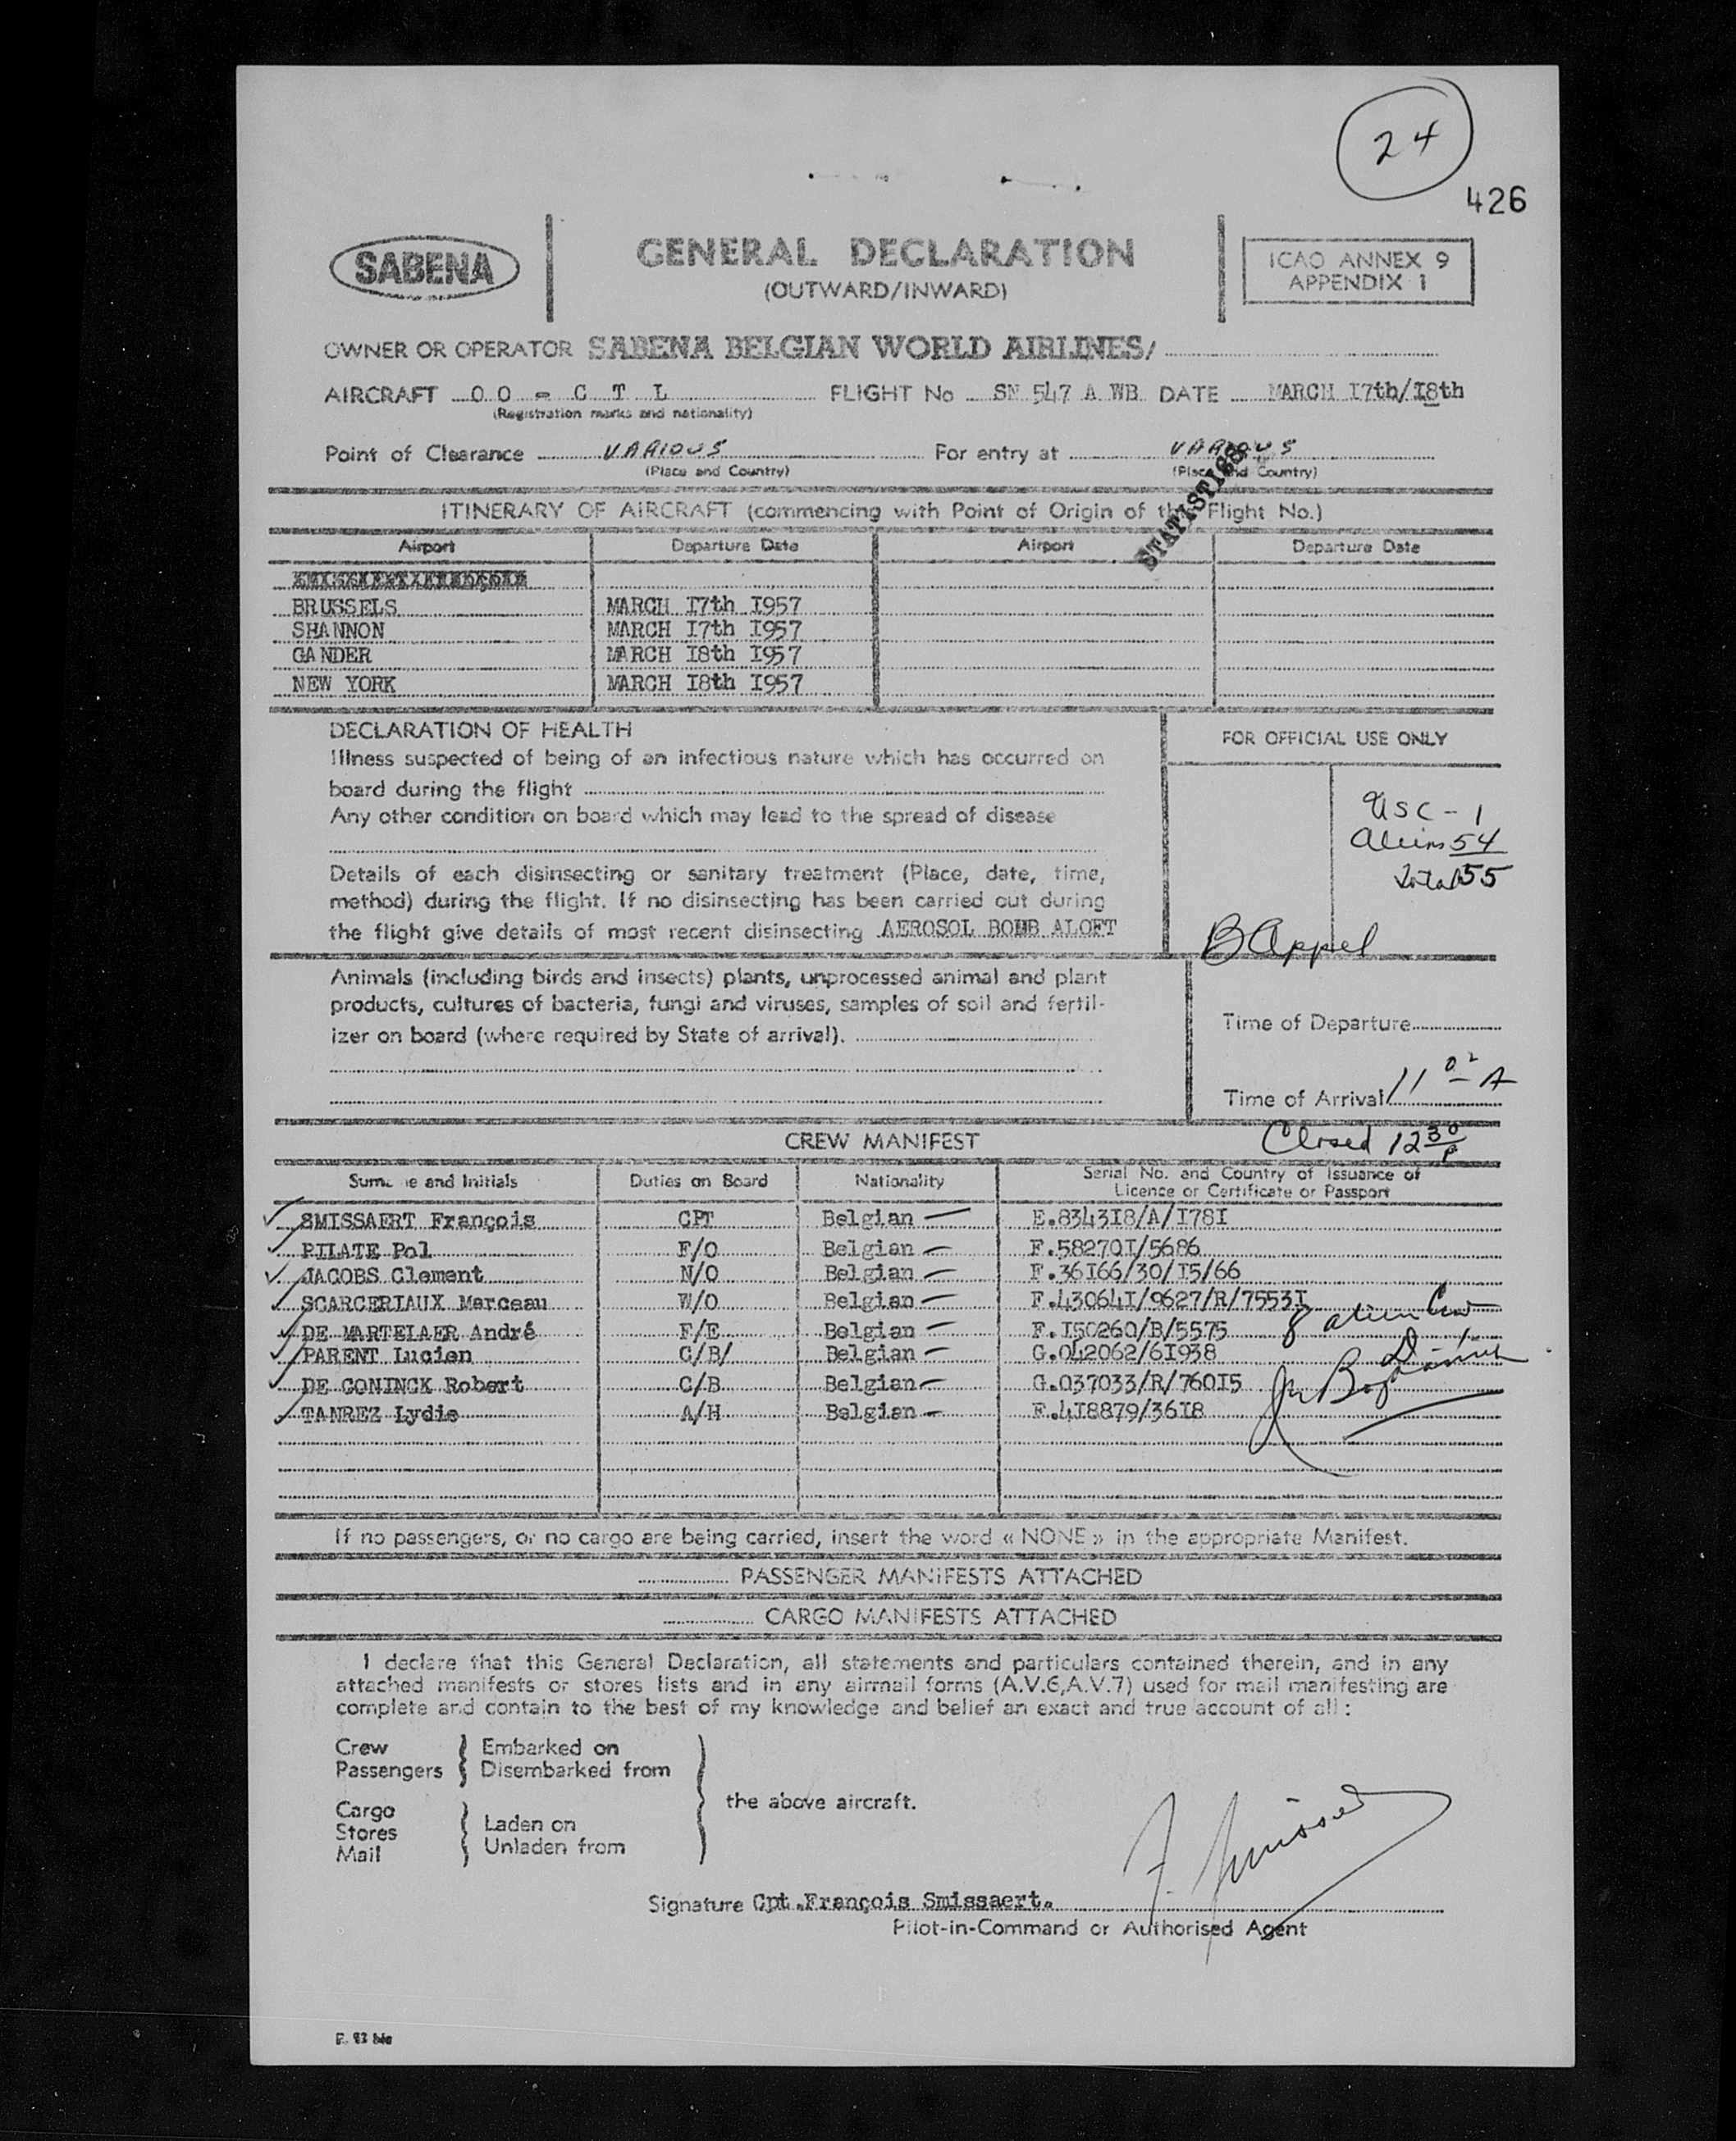 24
426
SABENA
GENERAL DECLARATION
(OUTWARD/INWARD)
ICAO ANNEX 9
APPENDIX 1
OWNER OR OPERATOR SABENA BELGIAN WORLD AIRLINES/
AIRCRAFT O O - C T L FLIGHT No SN 547 A WB DATE MARCH I7th/I8th
(Registration marks and nationality)
Point of Clearance VARIOUS For entry at VARIOUS
(Place and Country) (Place and Country)
STATISTICS
ITINERARY OF AIRCRAFT (commencing with Point of Origin of this Flight No.)
Airport Departure Date Airport Departure Date
BRUSSELS MARCH I7th I957
SHANNON MARCH I7th I957
GANDER MARCH I8th I957
NEW YORK MARCH I8th I957
DECLARATION OF HEALTH
Illness suspected of being of an infectious nature which has occurred on
board during the flight
Any other condition on board which may lead to the spread of disease
Details of each disinsecting or sanitary treatment (Place, date, time,
method) during the flight. If no disinsecting has been carried out during
the flight give details of most recent disinsecting AEROSOL BOMB ALOFT
FOR OFFICIAL USE ONLY
USC - 1
Aliens 54
Total 55
B Appel
Animals (including birds and insects) plants, unprocessed animal and plant
products, cultures of bacteria, fungi and viruses, samples of soil and fertil-
izer on board (where required by State of arrival).
Time of Departure
Time of Arrival 11 02 A
Closed 12 30 P
CREW MANIFEST
Surname and Initials Duties on Board Nationality Serial No. and Country of Issuance of
Licence or Certificate or Passport
SMISSAERT François CPT Belgian E.8343I8/A/I78I
PILATE Pol F/O Belgian F.58270I/5686
JACOBS Clement N/O Belgian F.36I66/30/I5/66
SCARCERIAUX Marceau W/O Belgian F.43064I/9627/R/7553I
DE MARTELAER André F/E Belgian F.I50260/B/5575
PARENT Lucien C/B/ Belgian G.042062/6I938
DE CONINCK Robert C/B Belgian G.037033/R/760I5
TANREZ Lydie A/H Belgian F.4I8879/36I8
8 alien Crew
If no passengers, or no cargo are being carried, insert the word « NONE » in the appropriate Manifest.
PASSENGER MANIFESTS ATTACHED
CARGO MANIFESTS ATTACHED
I declare that this General Declaration, all statements and particulars contained therein, and in any
attached manifests or stores lists and in any airmail forms (A.V.6,A.V.7) used for mail manifesting are
complete and contain to the best of my knowledge and belief an exact and true account of all :
Crew Embarked on
Passengers Disembarked from
the above aircraft.
Cargo
Stores Laden on
Mail Unladen from
F. Smissaert
Signature Cpt.François Smissaert.
Pilot-in-Command or Authorised Agent